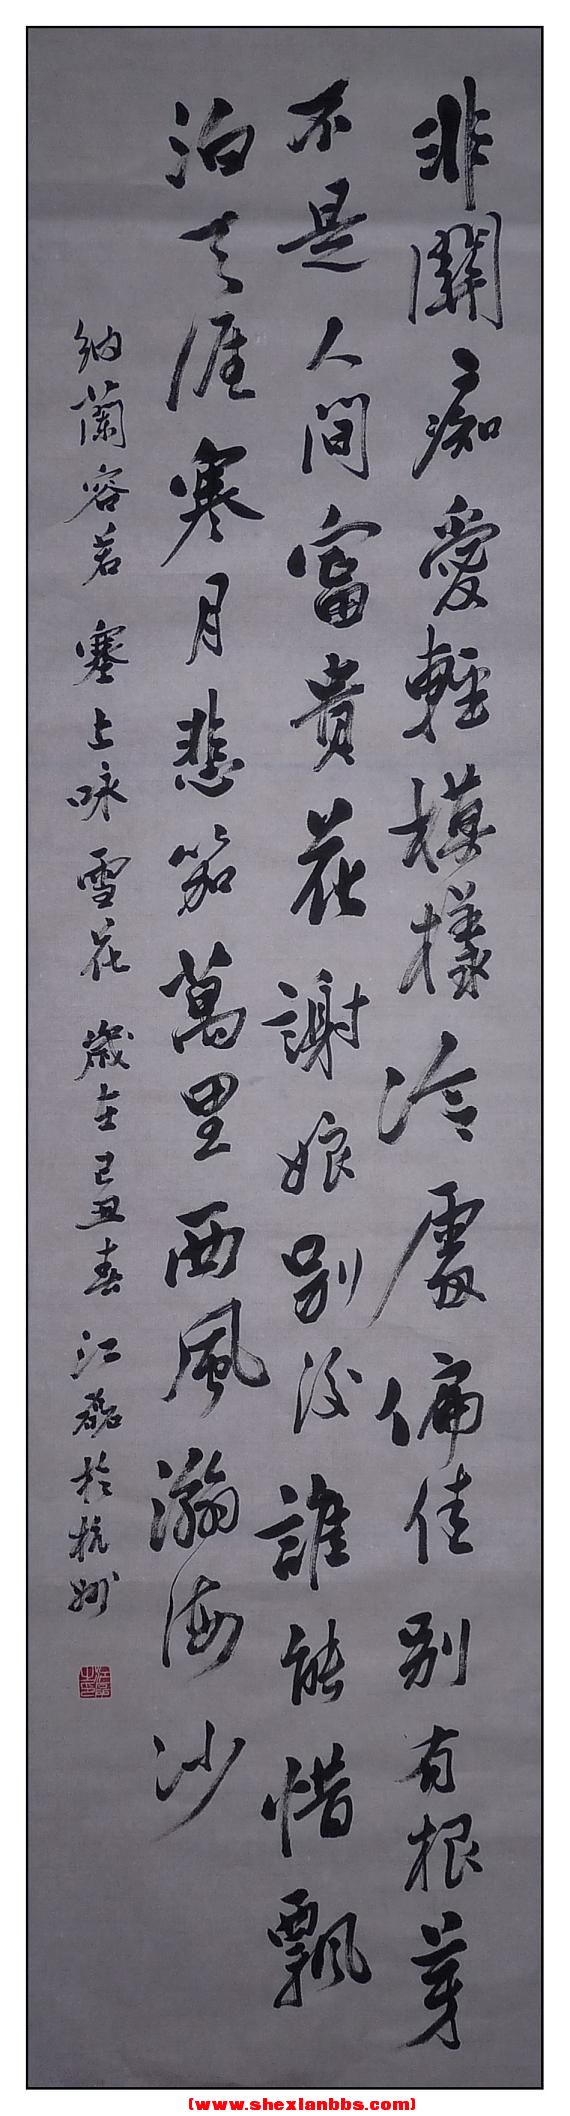 非關癡愛輕模樣冷處偏佳別有根芽
不是人間富貴花謝娘別後誰能惜飄
泊天涯寒月悲笳萬里西風瀚海沙
納蘭容若 塞上咏雪花 歲在己丑春 江磊於杭州
(www.shexianbbs.com)